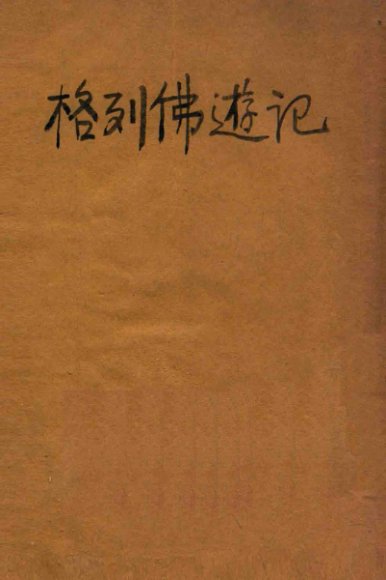 格列佛遊记